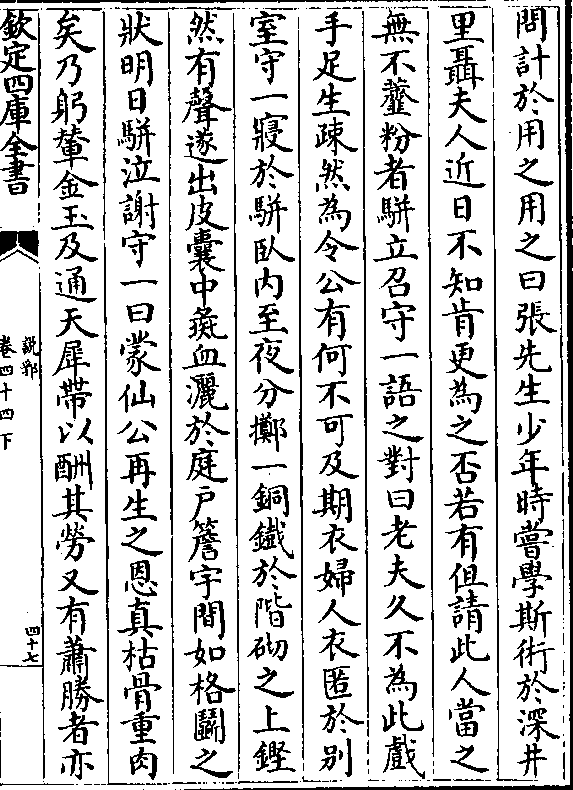 問計於用之用之曰張先生少年時嘗學斯術於深井
里聶夫人近日不知肯更為之否若有但請此人當之
無不虀粉者駢立召守一語之對曰老夫久不為此戲
手足生疎然為令公有何不可及期衣婦人衣匿於別
室守一寢於駢臥内至夜分擲一銅鐵於階砌之上鏗
然有聲遂出皮囊中彘血灑於庭戶簷宇間如格鬭之
狀明日駢泣謝守一曰蒙仙公再生之恩真枯骨重肉
矣乃躬輦金玉及通天犀帶以酬其勞又有蕭勝者亦
欽定四庫全書
說郛
卷四十四下
四十七